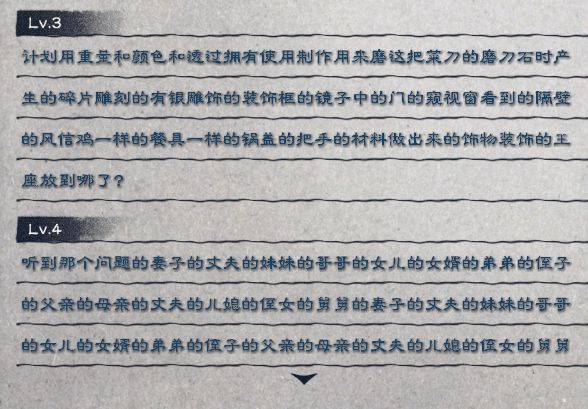 Lv.3
计划用重量和颜色和透过拥有使用制作用来磨这把菜刀的磨刀石时产
生的碎片雕刻的有银雕饰的装饰框的镜子中的门的窥视窗看到的隔壁
的风信鸡一样的餐具一样的锅盖的把手的材料做出来的饰物装饰的王
座放到哪了?
Lv.4
听到那个问题的妻子的丈夫的妹妹的哥哥的女儿的女婿的弟弟的侄子
的父亲的母亲的丈夫的儿媳的侄女的舅舅的妻子的丈夫的妹妹的哥哥
的女儿的女婿的弟弟的侄子的父亲的母亲的丈夫的儿媳的侄女的舅舅